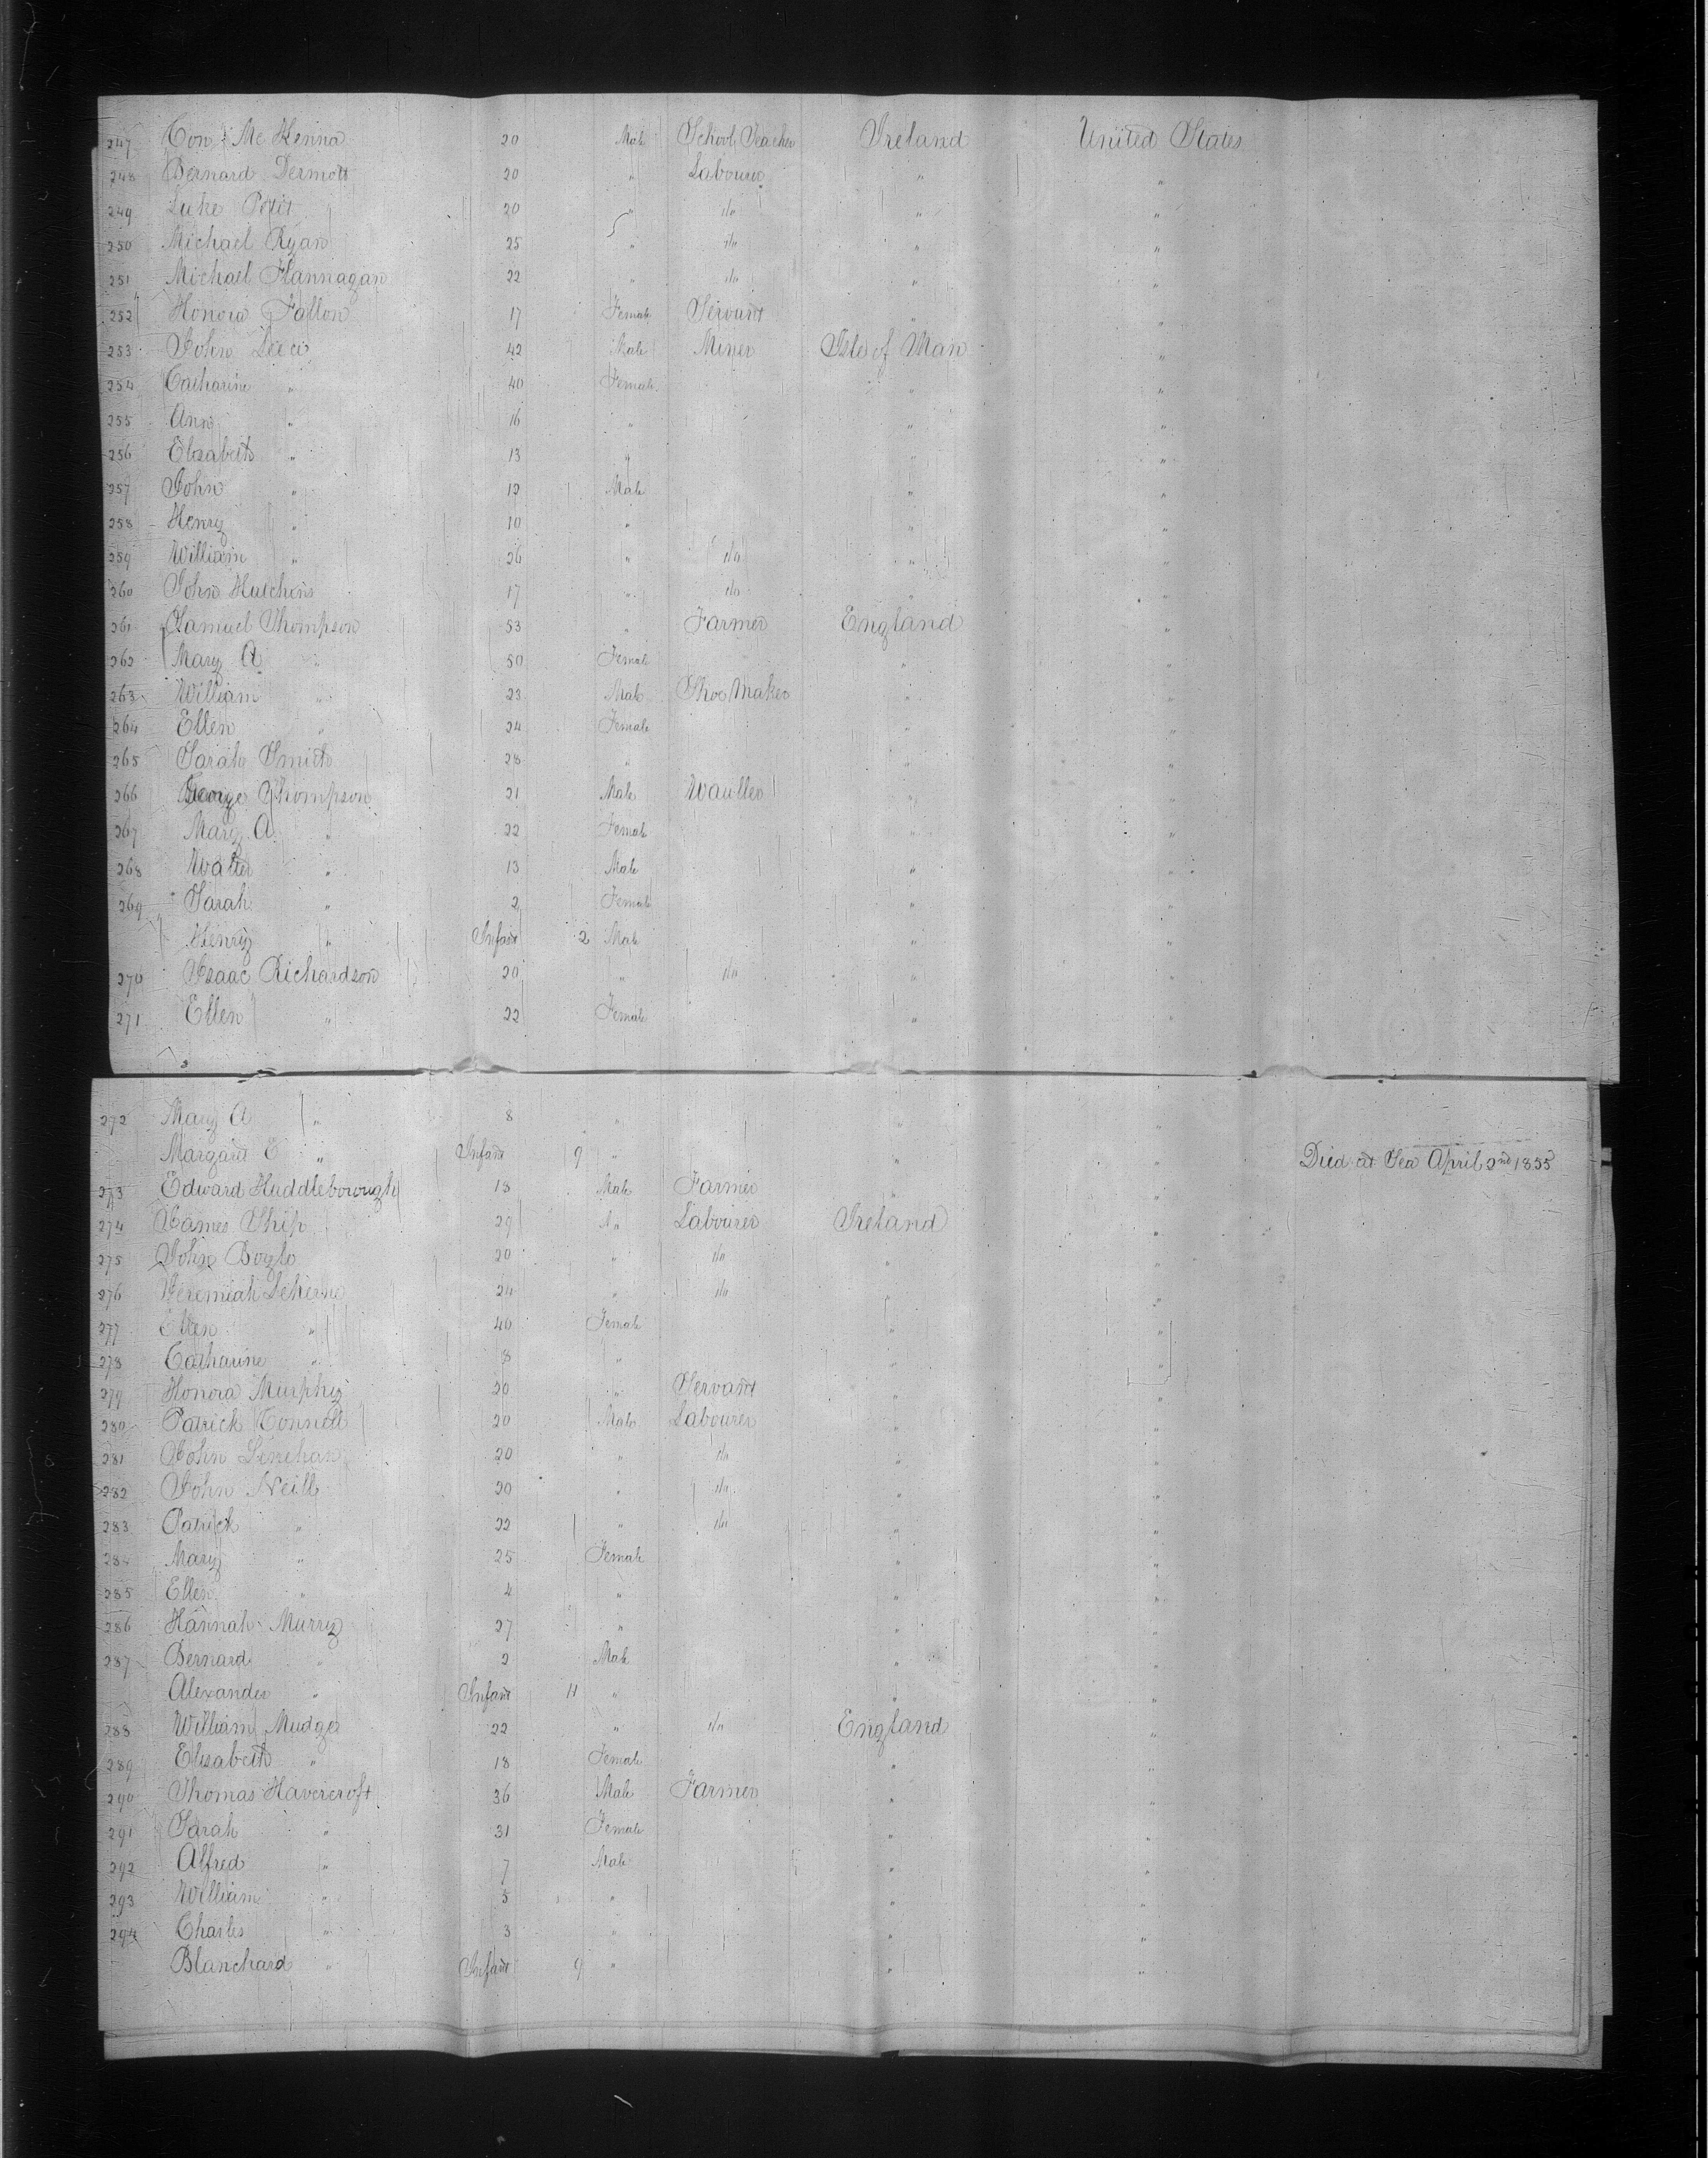 247 Con Mc Kenna 20 Male School Teacher Ireland United States
248 Bernard Dermott 20 " Labourer " "
249 Luke Petit 20 " do " "
250 Michael Ryan 25 " do " "
251 Michael Flannagan 22 " do " "
252 Honora Fallon 17 Female Servant " "
253 John 42 Male Miner Isle of Man "
254 Catharine " 40 Female " "
255 Ann " 16 " " "
256 Elisabeth " 13 " " "
257 John " 12 Male " "
258 Henry " 10 " " "
259 William " 26 " do " "
260 John Hutchins 17 " do " "
261 Samuel Thompson 53 " Farmer England "
262 Mary A " 50 Female " "
263 William " 23 Male Shoe Maker " "
264 Ellen " 24 Female " "
265 Sarah Smith 28 " " "
266 George Thompson 21 Male " "
267 Mary A " 22 Female " "
268 Walter " 13 Male " "
269 Sarah " 2 Female " "
Henry " Infant 2 Male " "
270 Isaac Richardson 20 " do " "
271 Ellen " 22 Female " "
272 Mary A " 8 " " "
Margaret E " Infant 9 " " " Died at Sea April 2nd 1855
273 Edward Huddleborough 18 Male Farmer " "
274 James Ship 29 " Labourer Ireland "
275 John Boyle 20 " do " "
276 Jeremiah 24 " do " "
277 Ellen " 40 Female " "
278 Catharine " 8 " " "
279 Honora Murphy 20 " Servant " "
280 Patrick Connell 20 Male Labourer " "
281 John Linehan 20 " do " "
282 John Neill 20 " do " "
283 Patrick " 22 " do " "
284 Mary " 25 Female " "
285 Ellen " 4 " " "
286 Hannah Murry 27 " " "
287 Bernard " 2 Male " "
Alexander " Infant 11 " " "
288 William Mudge 22 " do England "
289 Elisabeth " 18 Female " "
290 Thomas Havercroft 36 Male Farmer " "
291 Sarah " 31 Female " "
292 Alfred " 7 Male " "
293 William " 5 " " "
294 Charles " 3 " " "
Blanchard " Infant 9 " " "